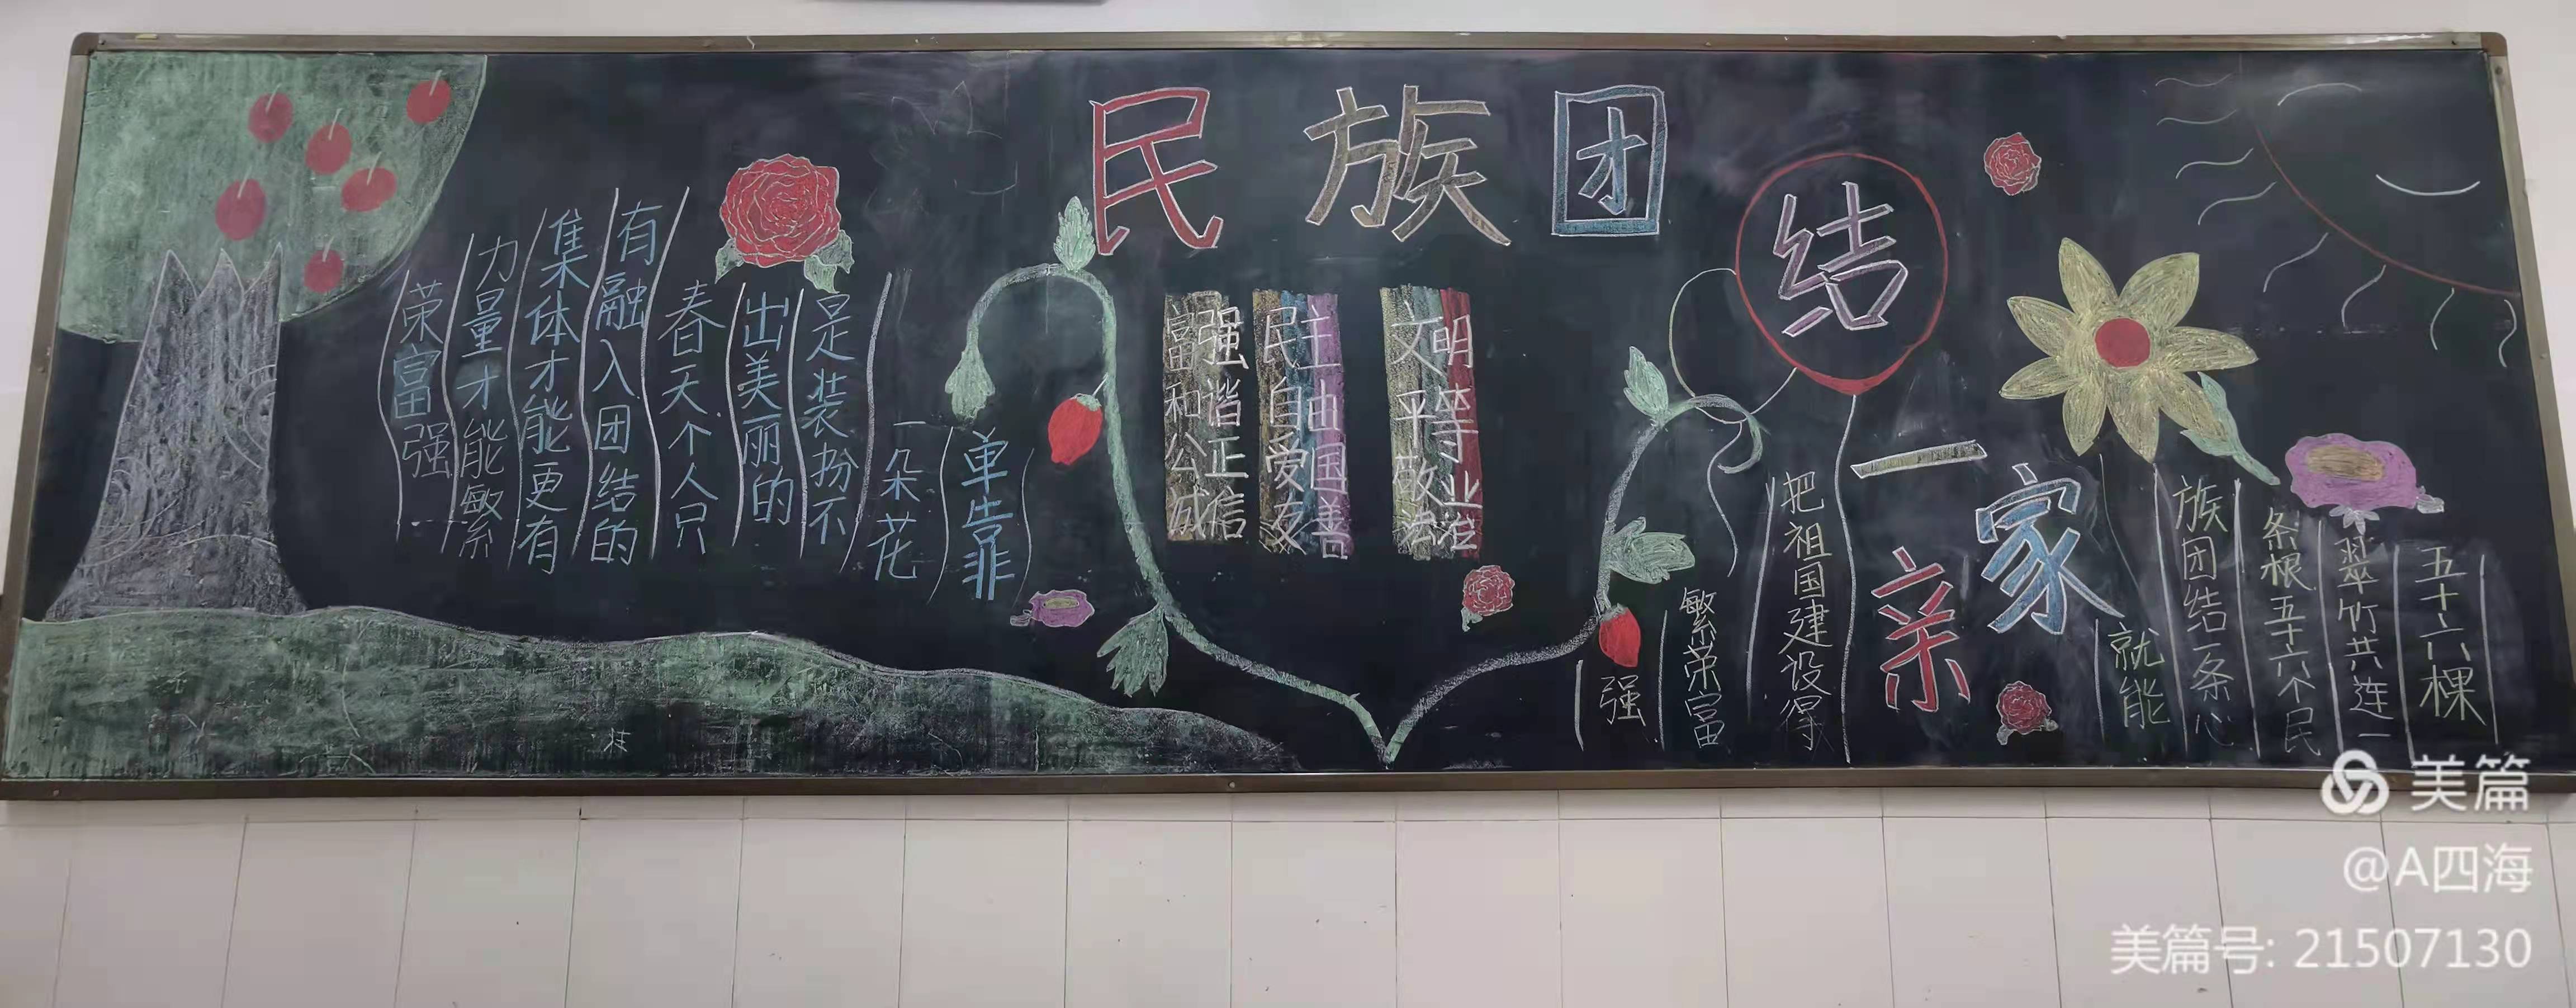 民族团结一家亲
单靠
一朵花
是装扮不
出美丽的
春天个人只
有融入团结的
集体才能更有
力量才能繁
荣富强
富强 民主 文明
和谐 自由 平等
公正 爱国 敬业
诚信 友善 法治
五十六棵
翠竹共连一
条根五十六个民
族团结一条心
就能
把祖国建设得
繁荣富
强
美篇
@A四海
美篇号: 21507130